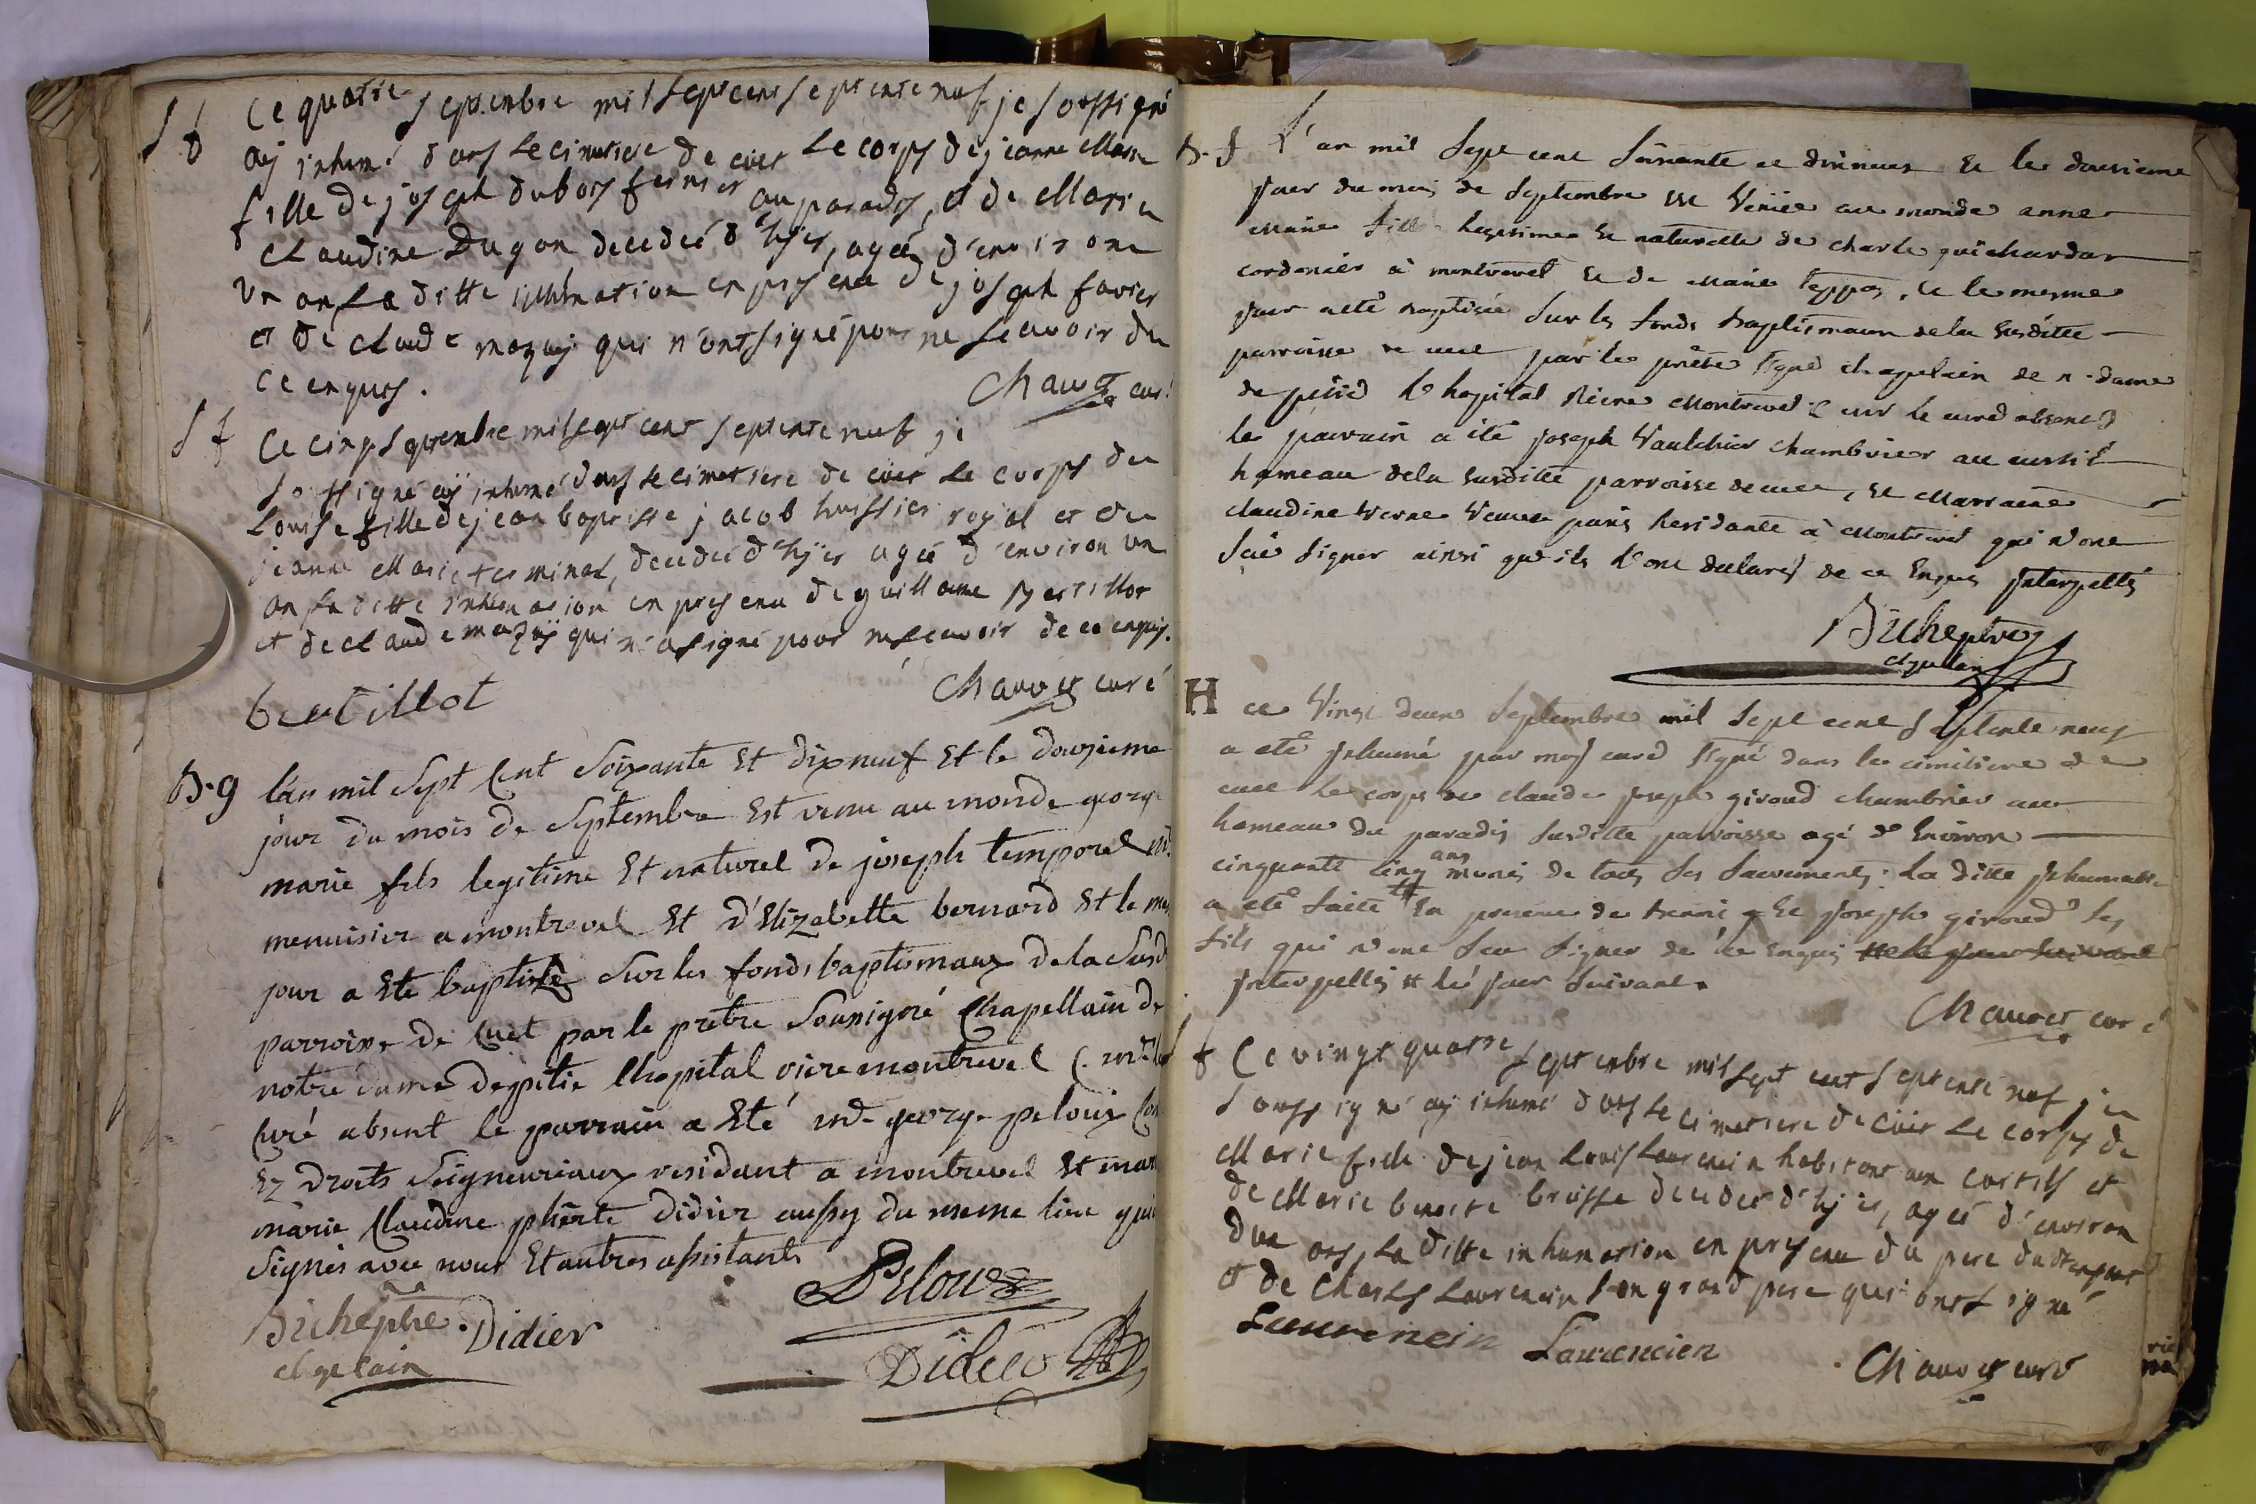 Ce quatre septembre mil sept cent septente neuf je soussigné
S 6 ay inhumé dans le cimetiere de cuet le corps de jeanne Marie
fille de joseph dubois fermier au paradis, et de Marie
Claudine Dugon decedeé d'hyer, ageé d'environ
un an la ditte inhumation en presence de joseph favier
et de claude mazuy qui n'ont signé pour ne scavoir de
ce enquis.
Chauvet curé
S f Ce cinq septembre mil sept cent septente neuf je
soussigné ay inhumé dans le cimetiere de cuet le corps de
Louise fille de jean baptiste jacob huissier royal et de
jeanne Marie terminet, decedeé d'hyer ageé d'environ un
an la ditte inhumation en presence de guillaume bertillot
et de claude mazuy qui n'a signé pour ne scavoir de ce enquis.
Chauvet curé
bertillot
B. g l'an mil sept Cent soixante Et dix neuf Et le douzieme
jour du mois de septembre Est venu au monde george
marie fils legitime Et naturel de joseph temporel md
menuisier a montrevel Et d'Elizabette bernard Et le me
jour a Eté baptisé sur les fonds baptismaux de la susd
parroisse de Cuet par le prêtre soussigné Chapellain de
notre dame de pitié lhopital riere montrevel
Curé absent le parrain a Eté md george peloux
Ez droits seigneuriaux residant a montrevel Et mar
marie Claudine Didier aussy du meme lieu qui
signés avec nous Et autres assistants
Peloux
Buhe ptre
chapelain
Didier
Didier
B. f L'an mil sept cent soixante et dixneuf et le douzieme
jour du mois de septembre est veniie au monde anne
marie fille legitime et naturelle de charle guichardan
cordonier à montrevel et de marie teppoz, et le mesme
jour a eté baptisée sur les fonds baptismaux de la susditte
parroisse de cuet par le prêtre signé chapelain de n. dame
de pitié l'hopital riere montrevel le curé absent
le parrain a été joseph Vaulchier chambrier au curtil
hameau de la susditte parroisse de cuet, et Marraine
claudine verne veuve residante à Montrevel qui n'ont
scu signer ainsi qu'ils l'ont declarés de ce Enquis Interpellés
Buhe ptre
chapelain
H ce vingt deux septembre mil sept cent septente neuf
a eté Inhumé par moy curé signé dans le cimitiere de
cuet le corps de claude joseph giroud chambrier au
hameau du paradis susditte parroisse agé d'Environ
cinquante cinq ans munis de tous ses sacrements. La ditte Inhumation
a eté faite # En presence de et joseph giroud ses
fils qui n'ont scu signer de ce enquis # le jour suivant
Interpellés # le jour suivant.
Chauvet curé
f Ce vingt quatre septembre mil sept cent septente neuf je
soussigné ay inhumé dans le cimetiere de cuet le corps de
Marie fille de jean louis laurencin habitant aux curtils et
de Marie benoite brosse decedeé d'hyer, ageé d'environ
deux ans, la ditte inhumation en presence du pere de
et de Charles laurencin son grand pere qui ont signé
Laurencin
Laurencien
Chauvet curé